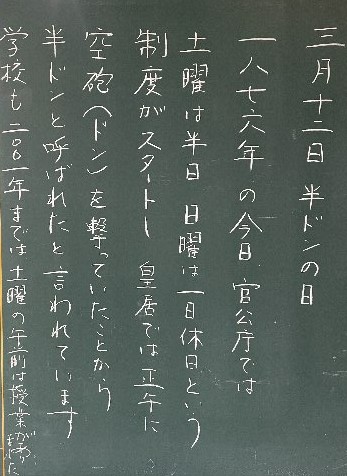 三月十二日 半ドンの日
一八七六年の今日 官公庁では
土曜は半日 日曜は一日休日という
制度がスタート 皇居では正午に
空砲(ドン)を撃っていたことから
半ドンと呼ばれたと言われています
学校も二〇〇一年までは土曜の午前は授業が